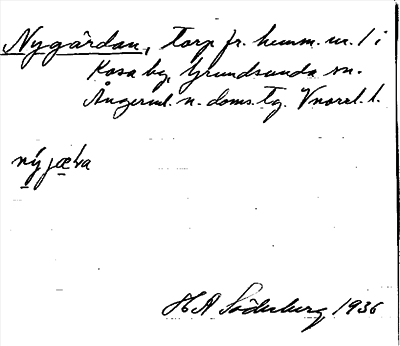 Nygärdan, torp fr. hemm. nr. 1 i
Kasa by, Grundsunda sn.
Ångerml. n. doms. tg. Vnorrl. l.
H A Söderberg 1936